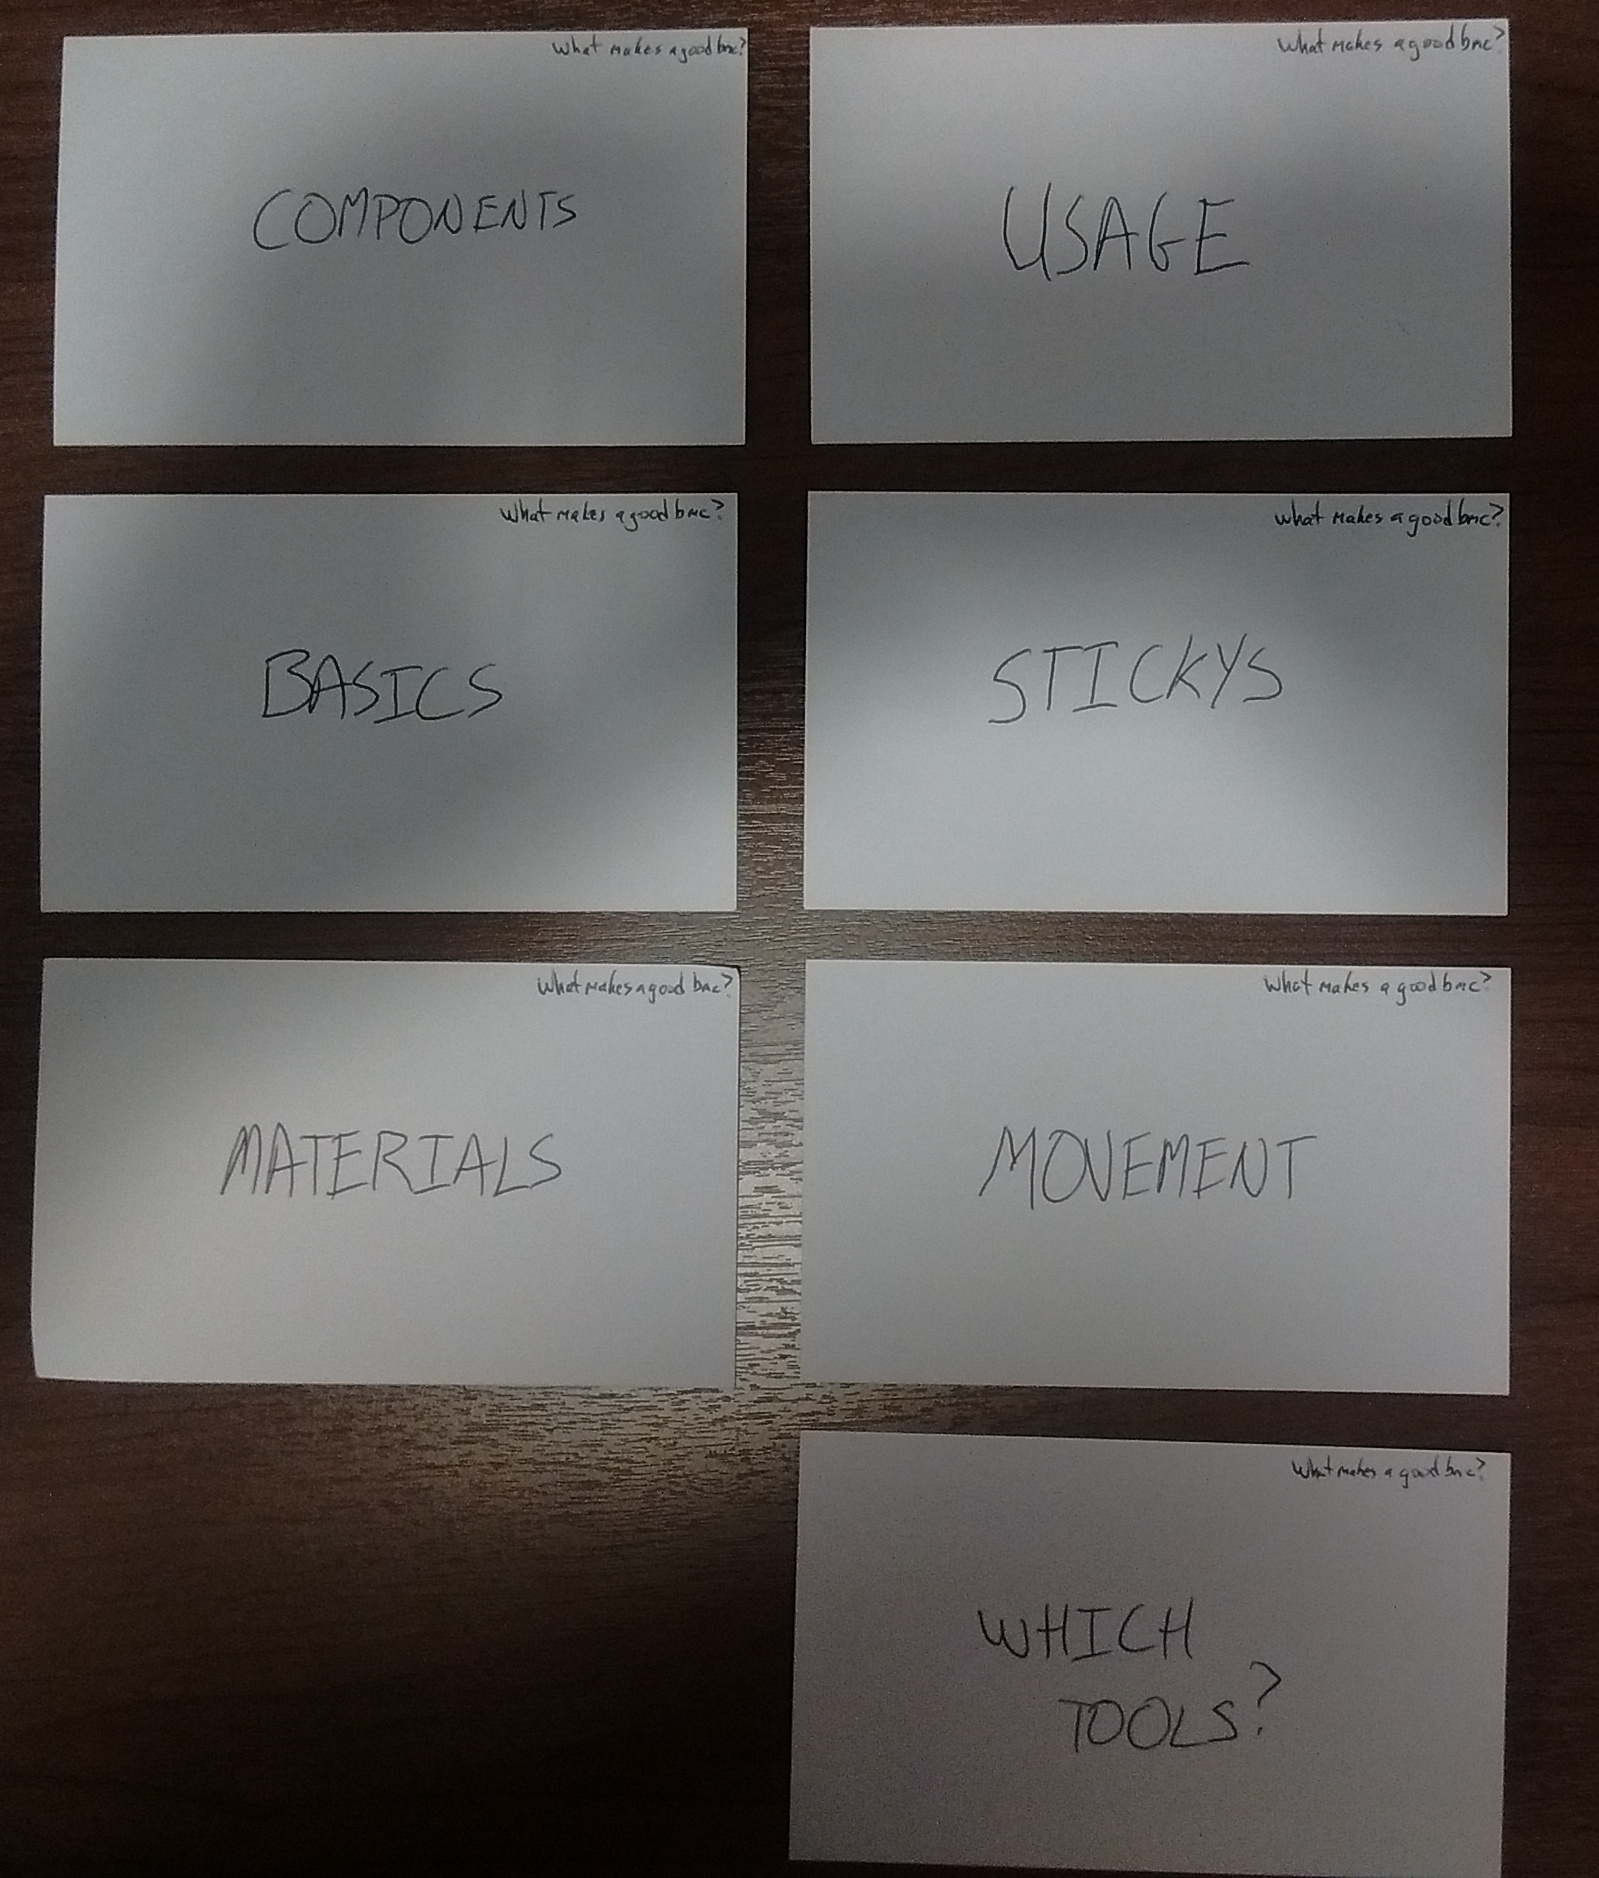 What makes a good bmc?
COMPONENTS
What makes a good bmc?
USAGE
What makes a good bmc?
BASICS
What makes a good bmc?
STICKYS
What makes a good bmc?
MATERIALS
What makes a good bmc?
MOVEMENT
What makes a good bmc?
WHICH
TOOLS?